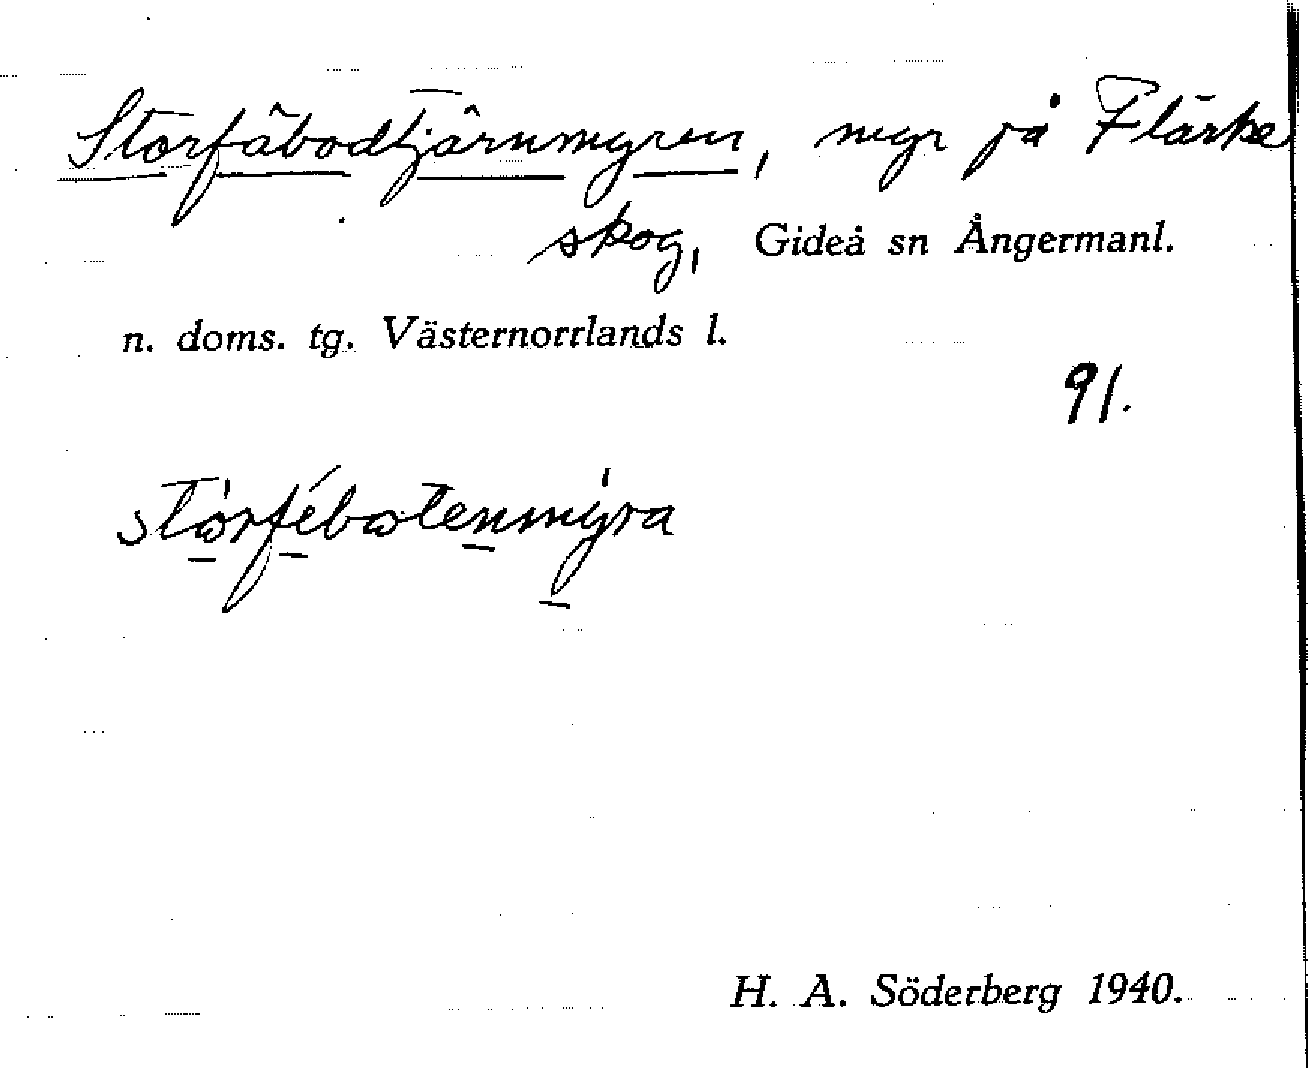 Storfäbodtjärnmyren, myr på Flärke
skog, Gideå sn Ångermanl.
n. doms. tg. Västernorrlands l.
91.
stórfébotenmýra
H. A. Söderberg 1940.